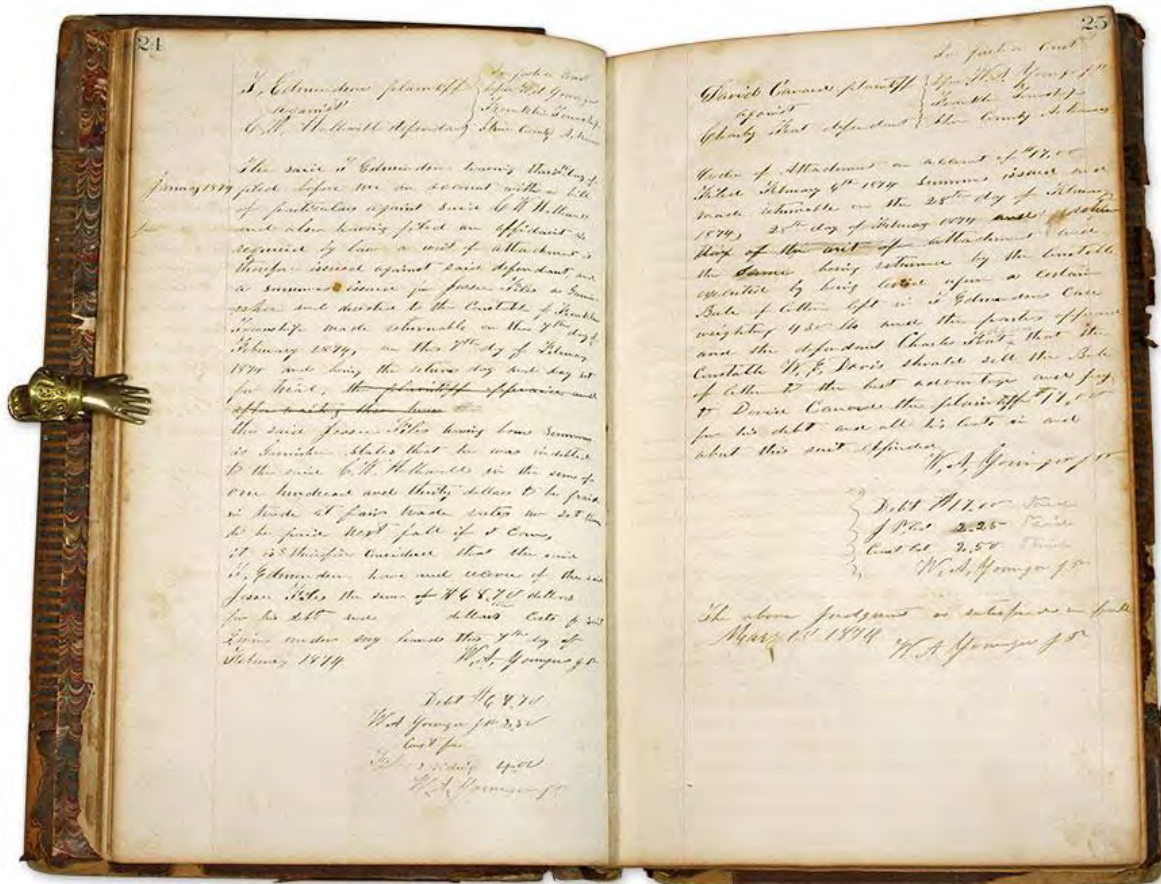 24
T, Edmundson plaintiff
against
C. W. Hallwell defendant
In justice Court
before W A Younger
Franklin Township
County
The said T Edmundson having this day of
January 1874 filed before me an account with a bill
of particulars against said C W
and also having filed an affidavit as
required by law a writ of attachment is
therefore issued against said defendant and
a summons issued for Jesse as
and directed to the Constable of Franklin
Township made returnable on this 7th day of
February 1874, on this 7th day of February
1874 and being the return day and day set
for trial, the plaintiff appearing and
after waiting three hours
the said Jesse having been
as Garnishee states that he was indebted
to the said C. W. in the sum of
one hundred and thirty dollars to be paid
in trade at fair trade rates
to be paid next fall
it is therefore considered that the said
T, Edmundson have and recover of the said
Jesse the sum of $68.70 dollars
for his debt and dollars Costs of suit
Given under my hand this 7th day of
February 1874 W. A, Younger J P
Debt $68.70
W. A Younger J P
W. A, Younger J P
25
David plaintiff
against
Charly defendant
In justice Court
before W. A Younger J P
Franklin Township
County Arkansas
Writ of Attachment on account of $17,00
Filed February 6th 1874 summons issued and
made returnable on the 28th day of February
1874, 28th day of February 1874 and
of the writ of attachment and
the same being returned by the Constable
executed by being levied upon a certain
Bale of Cotton left in T Edmundsons Care
weighting 450 lbs and the parties
and the defendant Charles agrees that the
Constable W, G, Davis should sell the Bale
of Cotton to the best advantage and pay
to David the plaintiff $17,00
for his debt and all his Costs in and
about this suit expended
W. A, Younger J P
Debt $17.00 Paid
J P Cost 2.25 Paid
Const Cost 2,50 Paid
W, A, Younger J P
The above Judgment is satisfied in full
1874
W A Younger J P